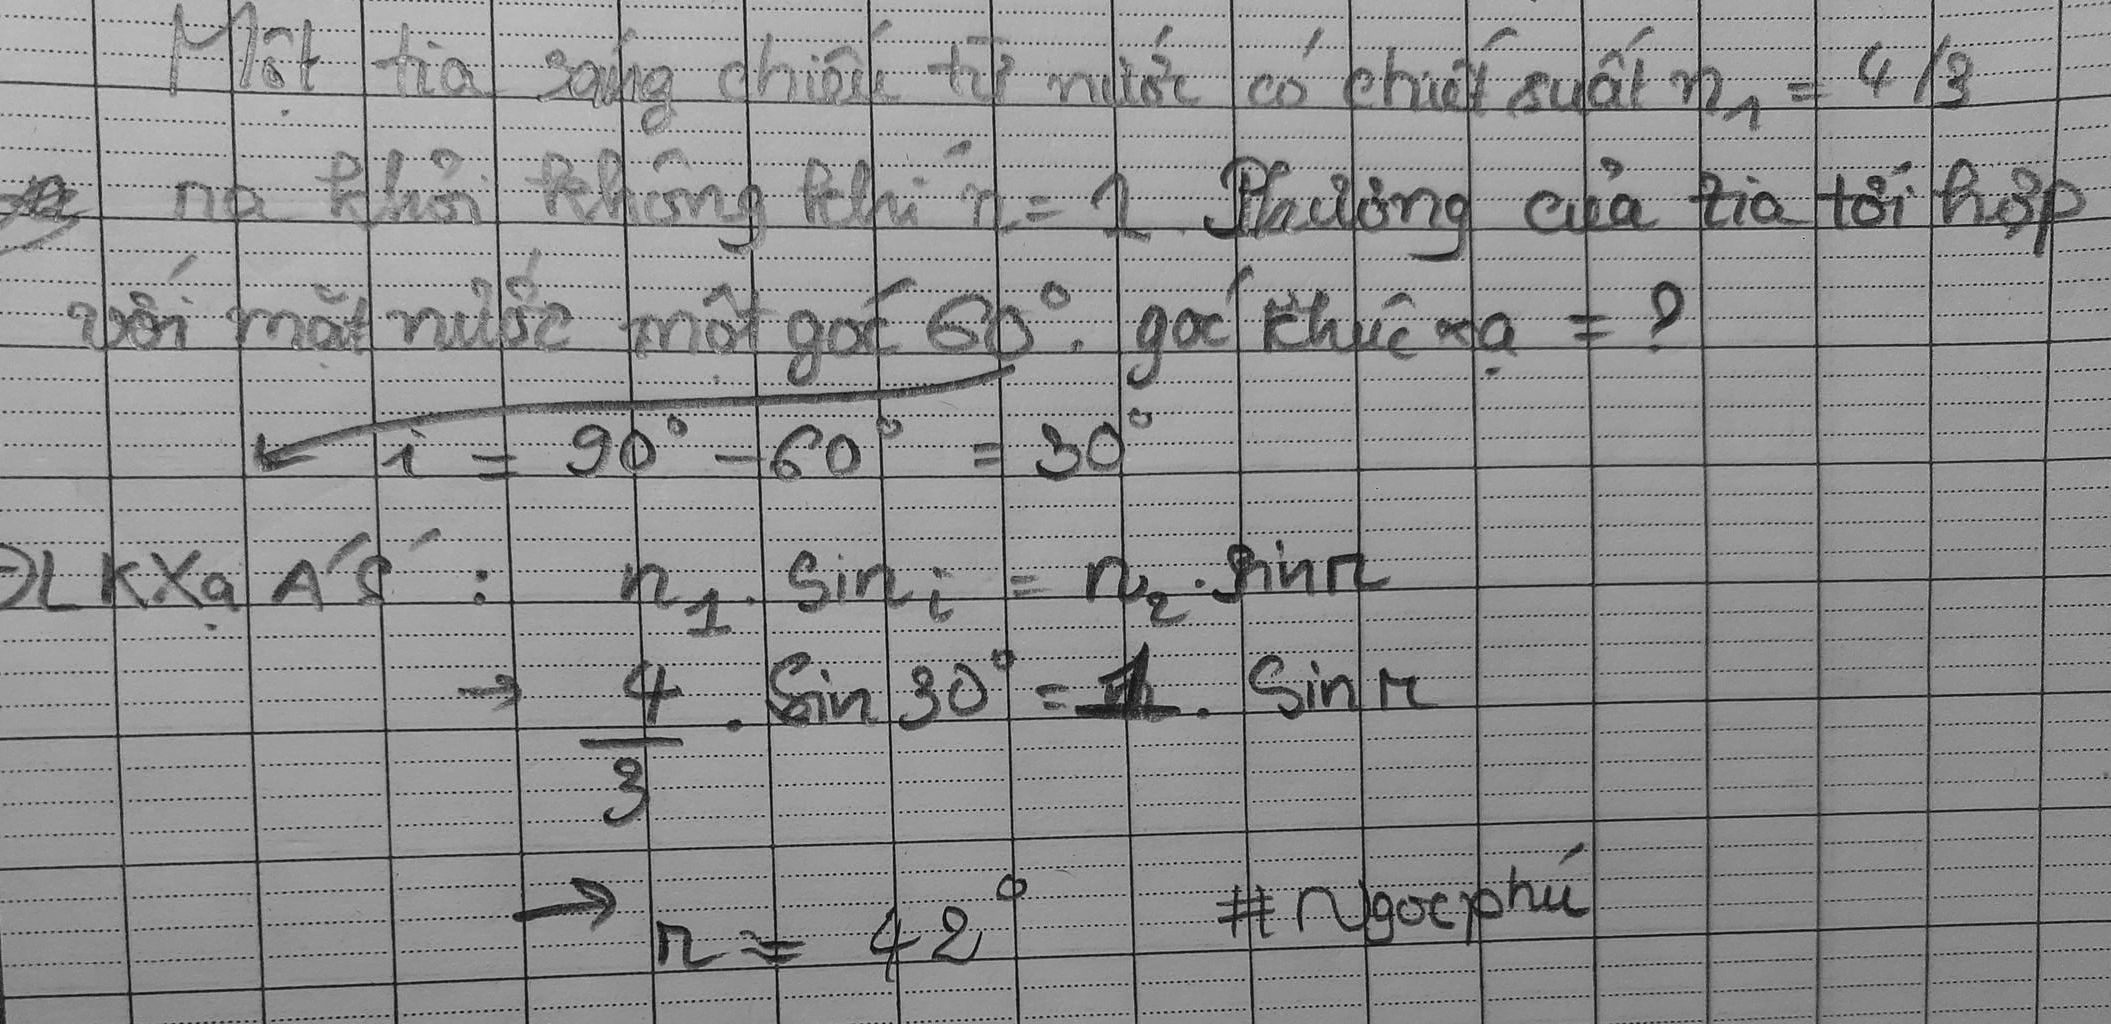 Một tia sáng chiếu từ nước có chiết suất n1 = 4/3
ra khỏi không khí n = 1. Phương của tia tới hợp
với mặt nước một góc 60°. góc khúc xạ = ?
i = 90° - 60° = 30°
ĐL KXạ ÁS : n1. sin i = n2. sin r
→ 4/3 . sin 30° = 1. sin r
→ r = 42° #Ngọcphú